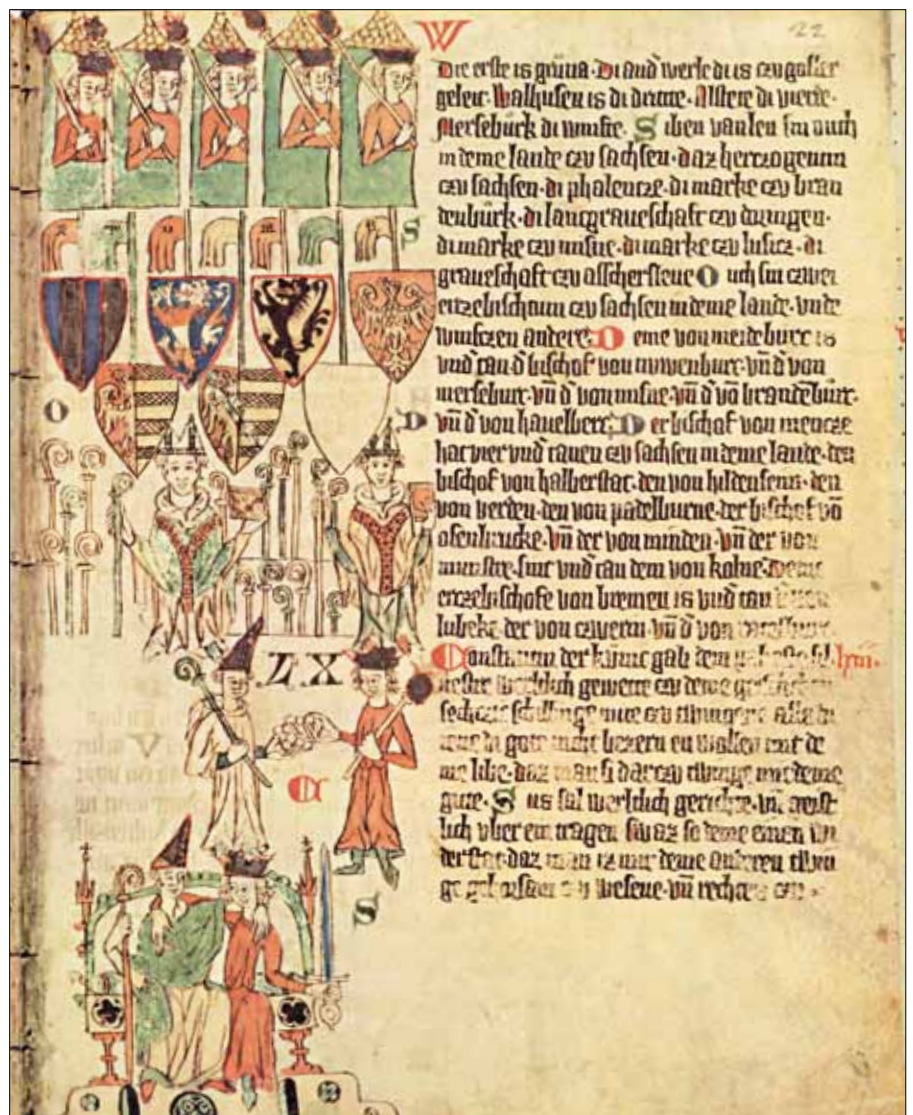 22
W
Die erste is grũna · Di and̄ werle di is czu goslar
geleit · Walhusen is di dritte · Alstete di vierde ·
Mersebůrk di vumfte · S iben vanlen sin ouch
in deme lande czu sachsen · daz herczogetum
czu sachsen · di phalencze · di marke czu bran
denbůrk · di lantgraueschaft czu duringen ·
di marke czu misne · di marke czu lusicz · di
graueschaft czu asschersleue O uch sin czwei
erczebischtum czu sachsen in deme lande · vnde
vumfczen andere D eme von meideburc is
vnd̄ tan d̄ bischof von nuwenburc · vn̄ d̄ von
merseburc · vn̄ d̄ von misne · vn̄ d̄ vō brandēburc ·
vn̄ d̄ von hauelberc D er bischof von mencze
hat vier vnd̄ tanen czu sachsen in deme lande · den
bischof von halberstat · den von hildensem · den
von verden · den von padelburne · der bischof vō
osenbrucke · vn̄ der von minden · vn̄ der von
munstre · sint vnd̄ tan dem von kolne · Deme
erczebischofe von bremen is vnd̄ tan
lubeke der von czwerin vn̄ d̄ von
C onstantin der kunic gab dem
werltlich gewette czu deme
sechczic schillinge mite czu twingene alle di
iene di gote nicht bezzern en wollen mit de
me libe · daz man si darczu twinge mit deme
gute · S us sal werltlich gerichte · vn̄ geist
lich vber ein tragen swaz so deme einen wi
derstat daz man iz mit deme anderen twin
ge gehorsam czu wesene · vn̄ rechtes czu
S
O
D
LX
C
S